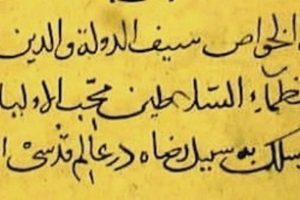 الخواص سيف الدولة والدين
عظماء السلاطين محب الاوليا
وسلك به سبيل رضاه در عالم قدسى ا